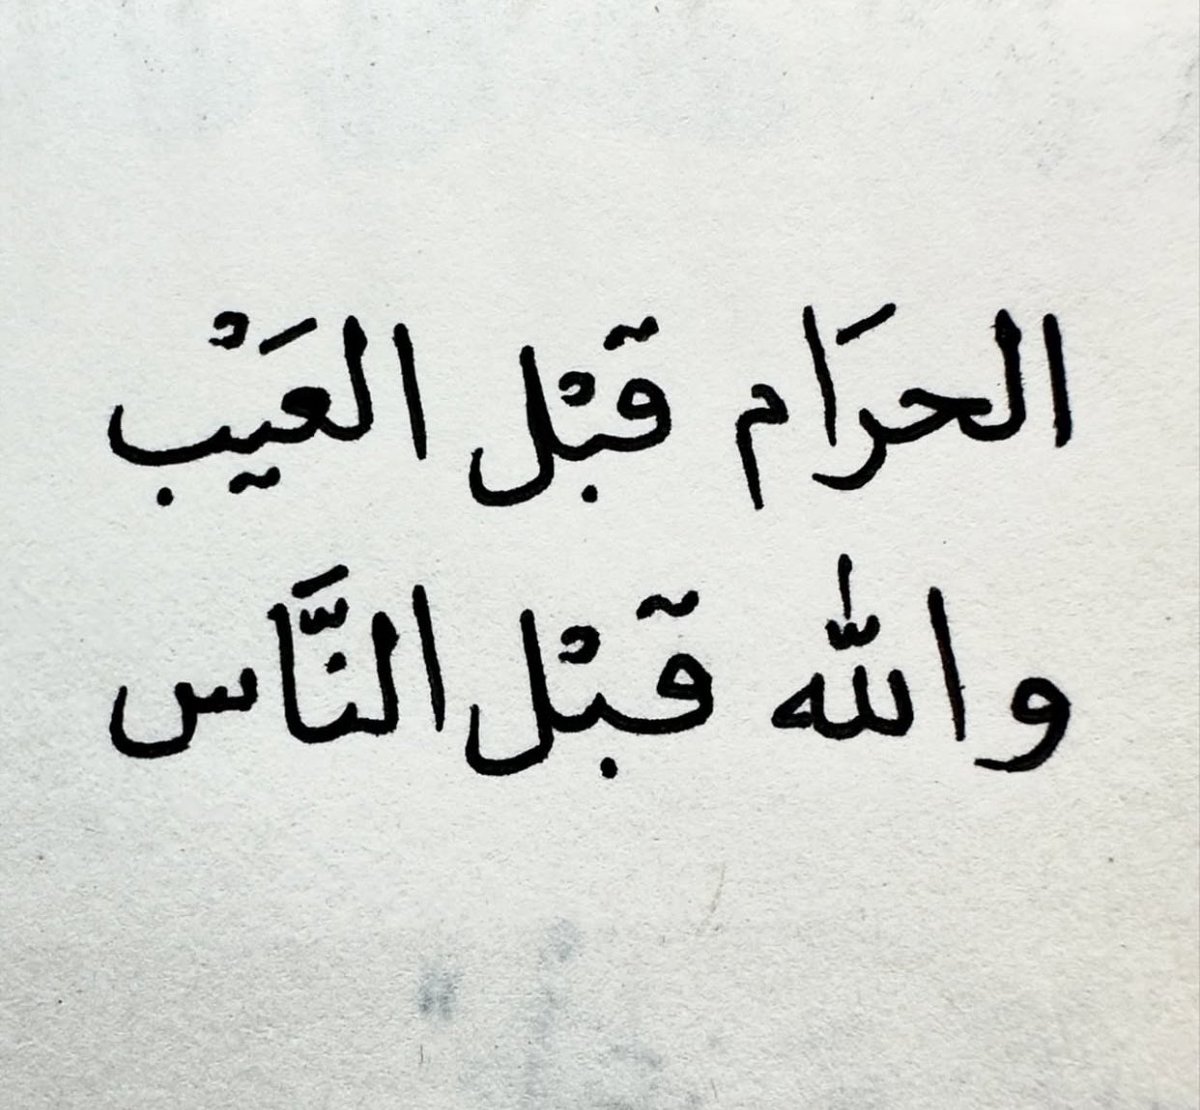 الحرَام قَبْل العَيْب
والله قَبْل النَّاس